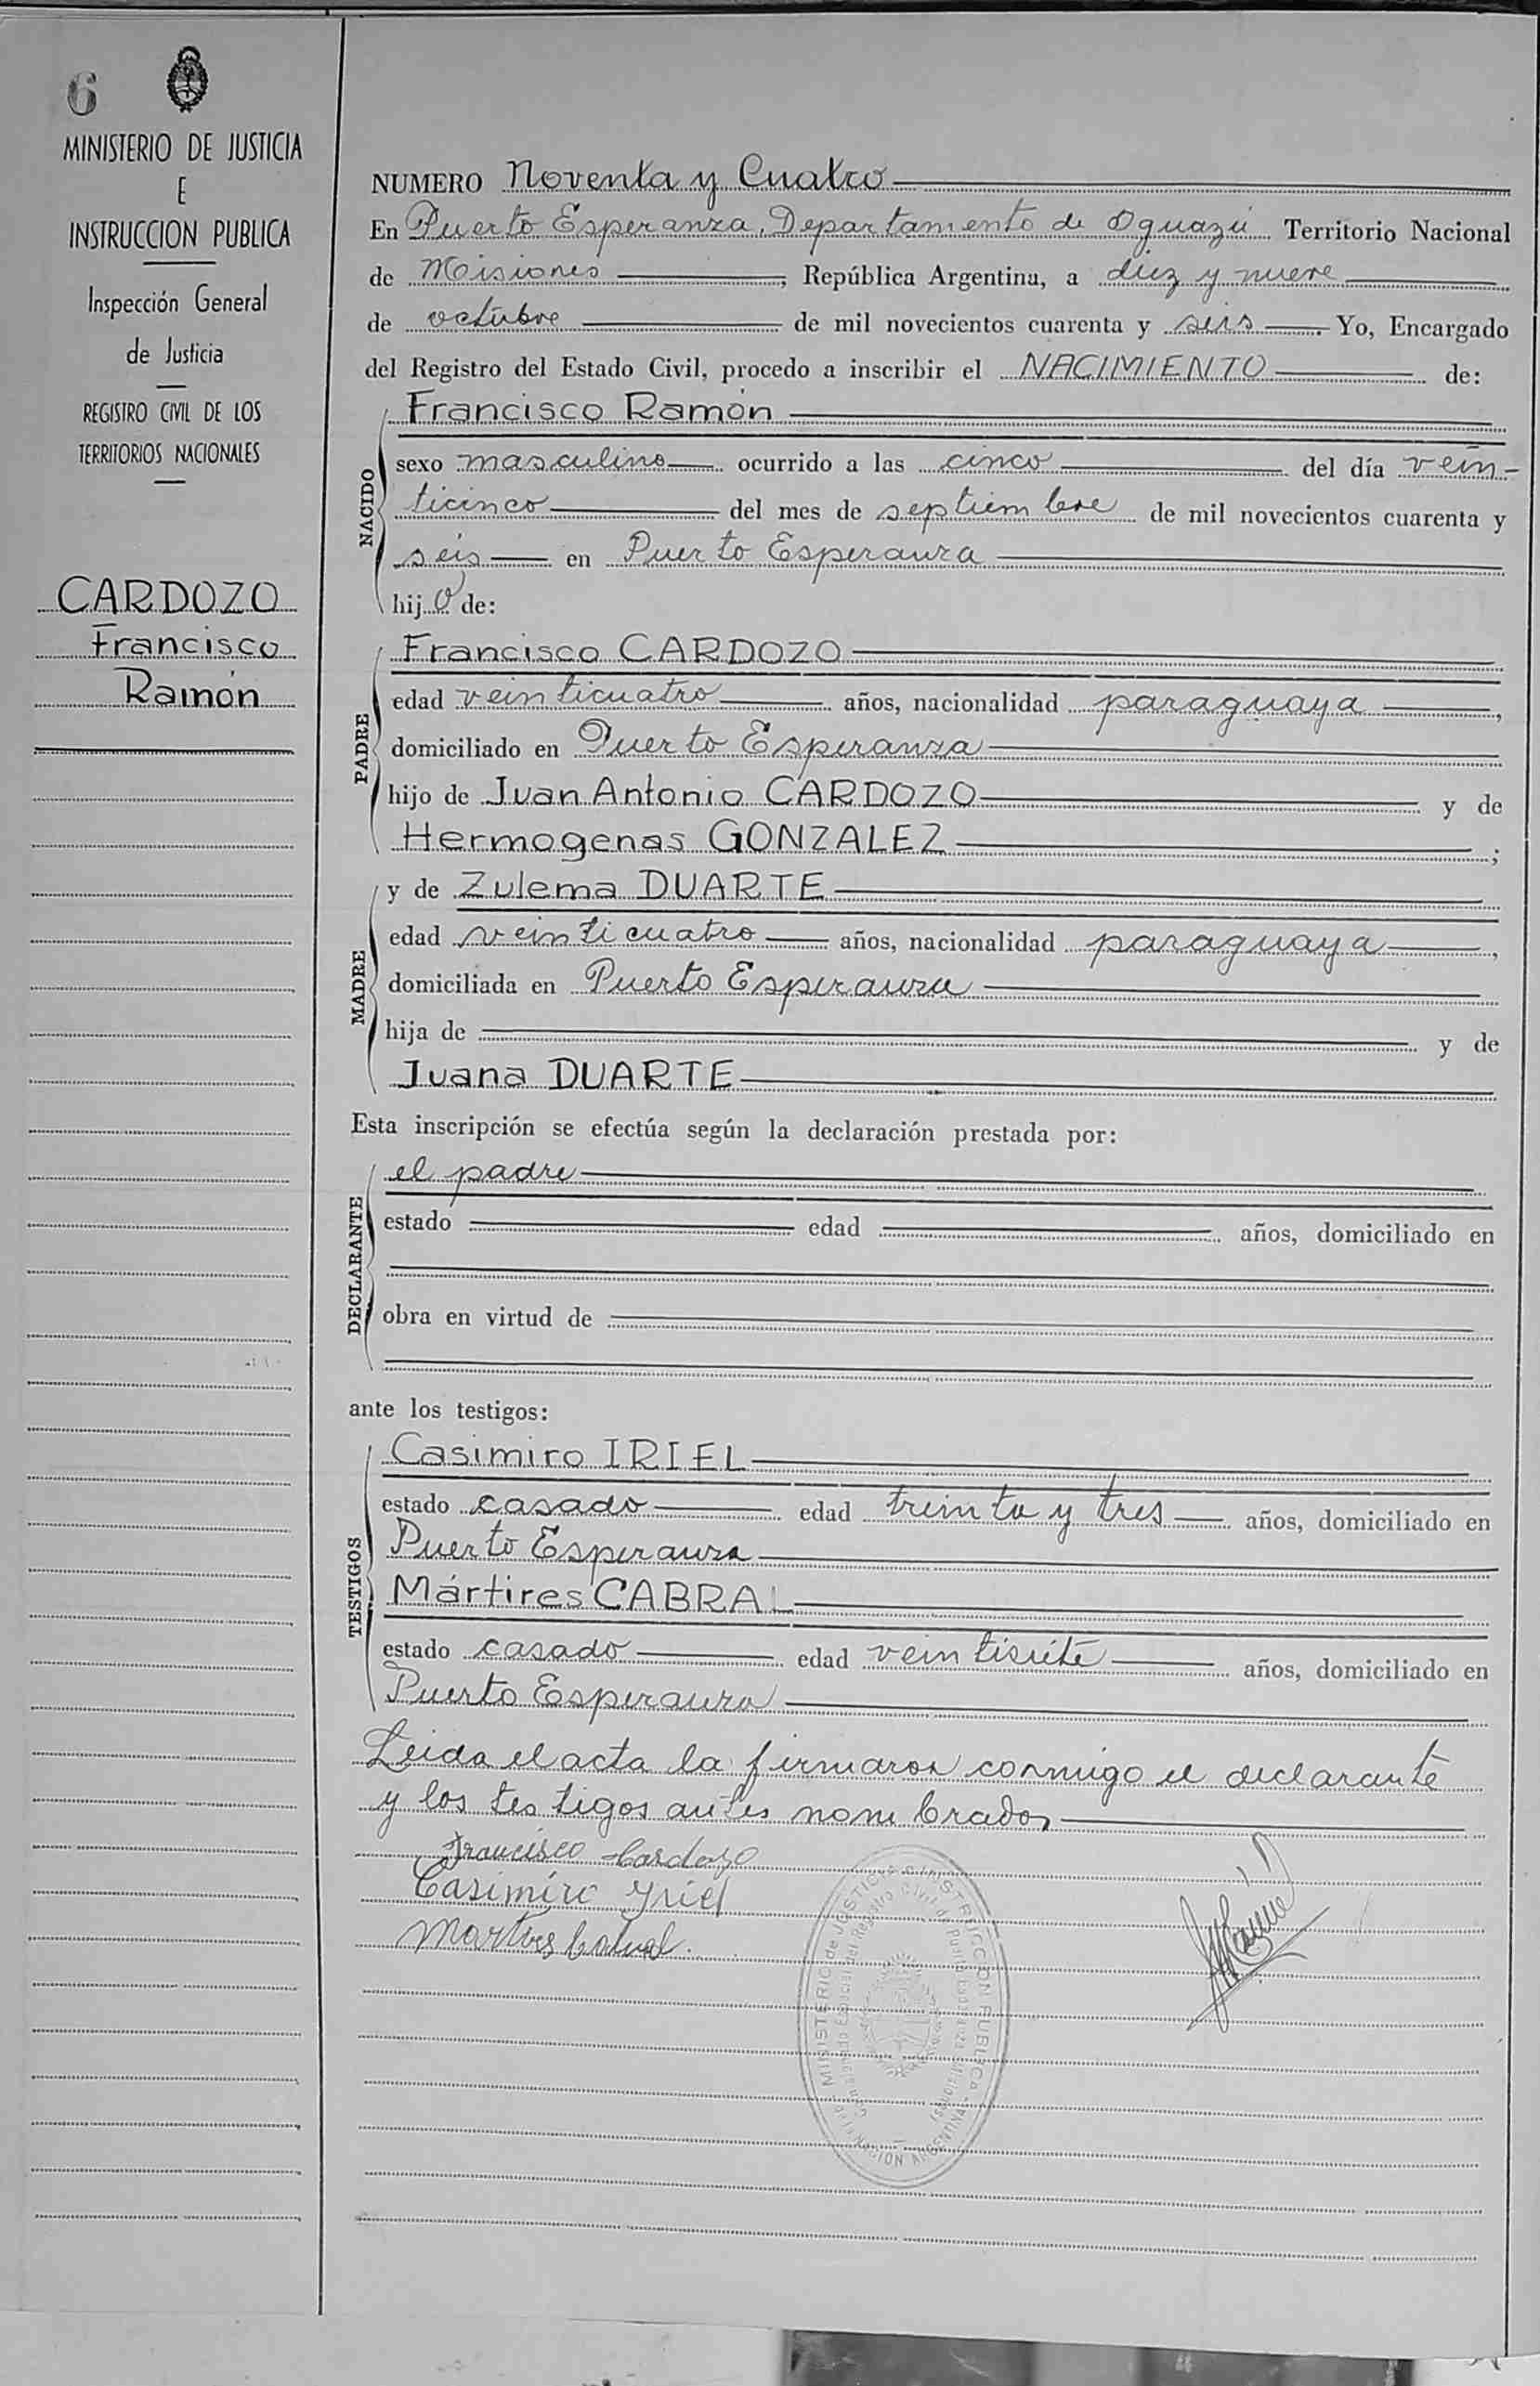 6
MINISTERIO DE JUSTICIA
E
INSTRUCCION PUBLICA
Inspección General
de Justicia
REGISTRO CIVIL DE LOS
TERRITORIOS NACIONALES
CARDOZO
Francisco
Ramón
NUMERO Noventa y Cuatro
En Puerto Esperanza, Departamento de Oguazú Territorio Nacional
de Misiones; República Argentina, a diez y nueve
de octubre de mil novecientos cuarenta y seis. Yo, Encargado
del Registro del Estado Civil, procedo a inscribir el NACIMIENTO de:
NACIDO
Francisco Ramón
sexo masculino ocurrido a las cinco del día vein-
ticinco del mes de septiembre de mil novecientos cuarenta y
seis en Puerto Esperanza
hijo de:
PADRE
Francisco CARDOZO
edad veinticuatro años, nacionalidad paraguaya,
domiciliado en Puerto Esperanza
hijo de Juan Antonio CARDOZO y de
Hermogenas GONZALEZ;
MADRE
y de Zulema DUARTE
edad veinticuatro años, nacionalidad paraguaya,
domiciliada en Puerto Esperanza
hija de y de
Juana DUARTE
Esta inscripción se efectúa según la declaración prestada por:
DECLARANTE
el padre
estado edad años, domiciliado en
obra en virtud de
ante los testigos:
TESTIGOS
Casimiro IRIEL
estado casado edad treinta y tres años, domiciliado en
Puerto Esperanza
Mártires CABRAL
estado casado edad veintisiete años, domiciliado en
Puerto Esperanza
Leida el acta la firmaron conmigo el declarante
y los testigos antes nombrados
Francisco Cardozo
Casimiro Yriel
Martires Cabral.
MINISTERIO de JUSTICIA e INSTRUCCION PUBLICA